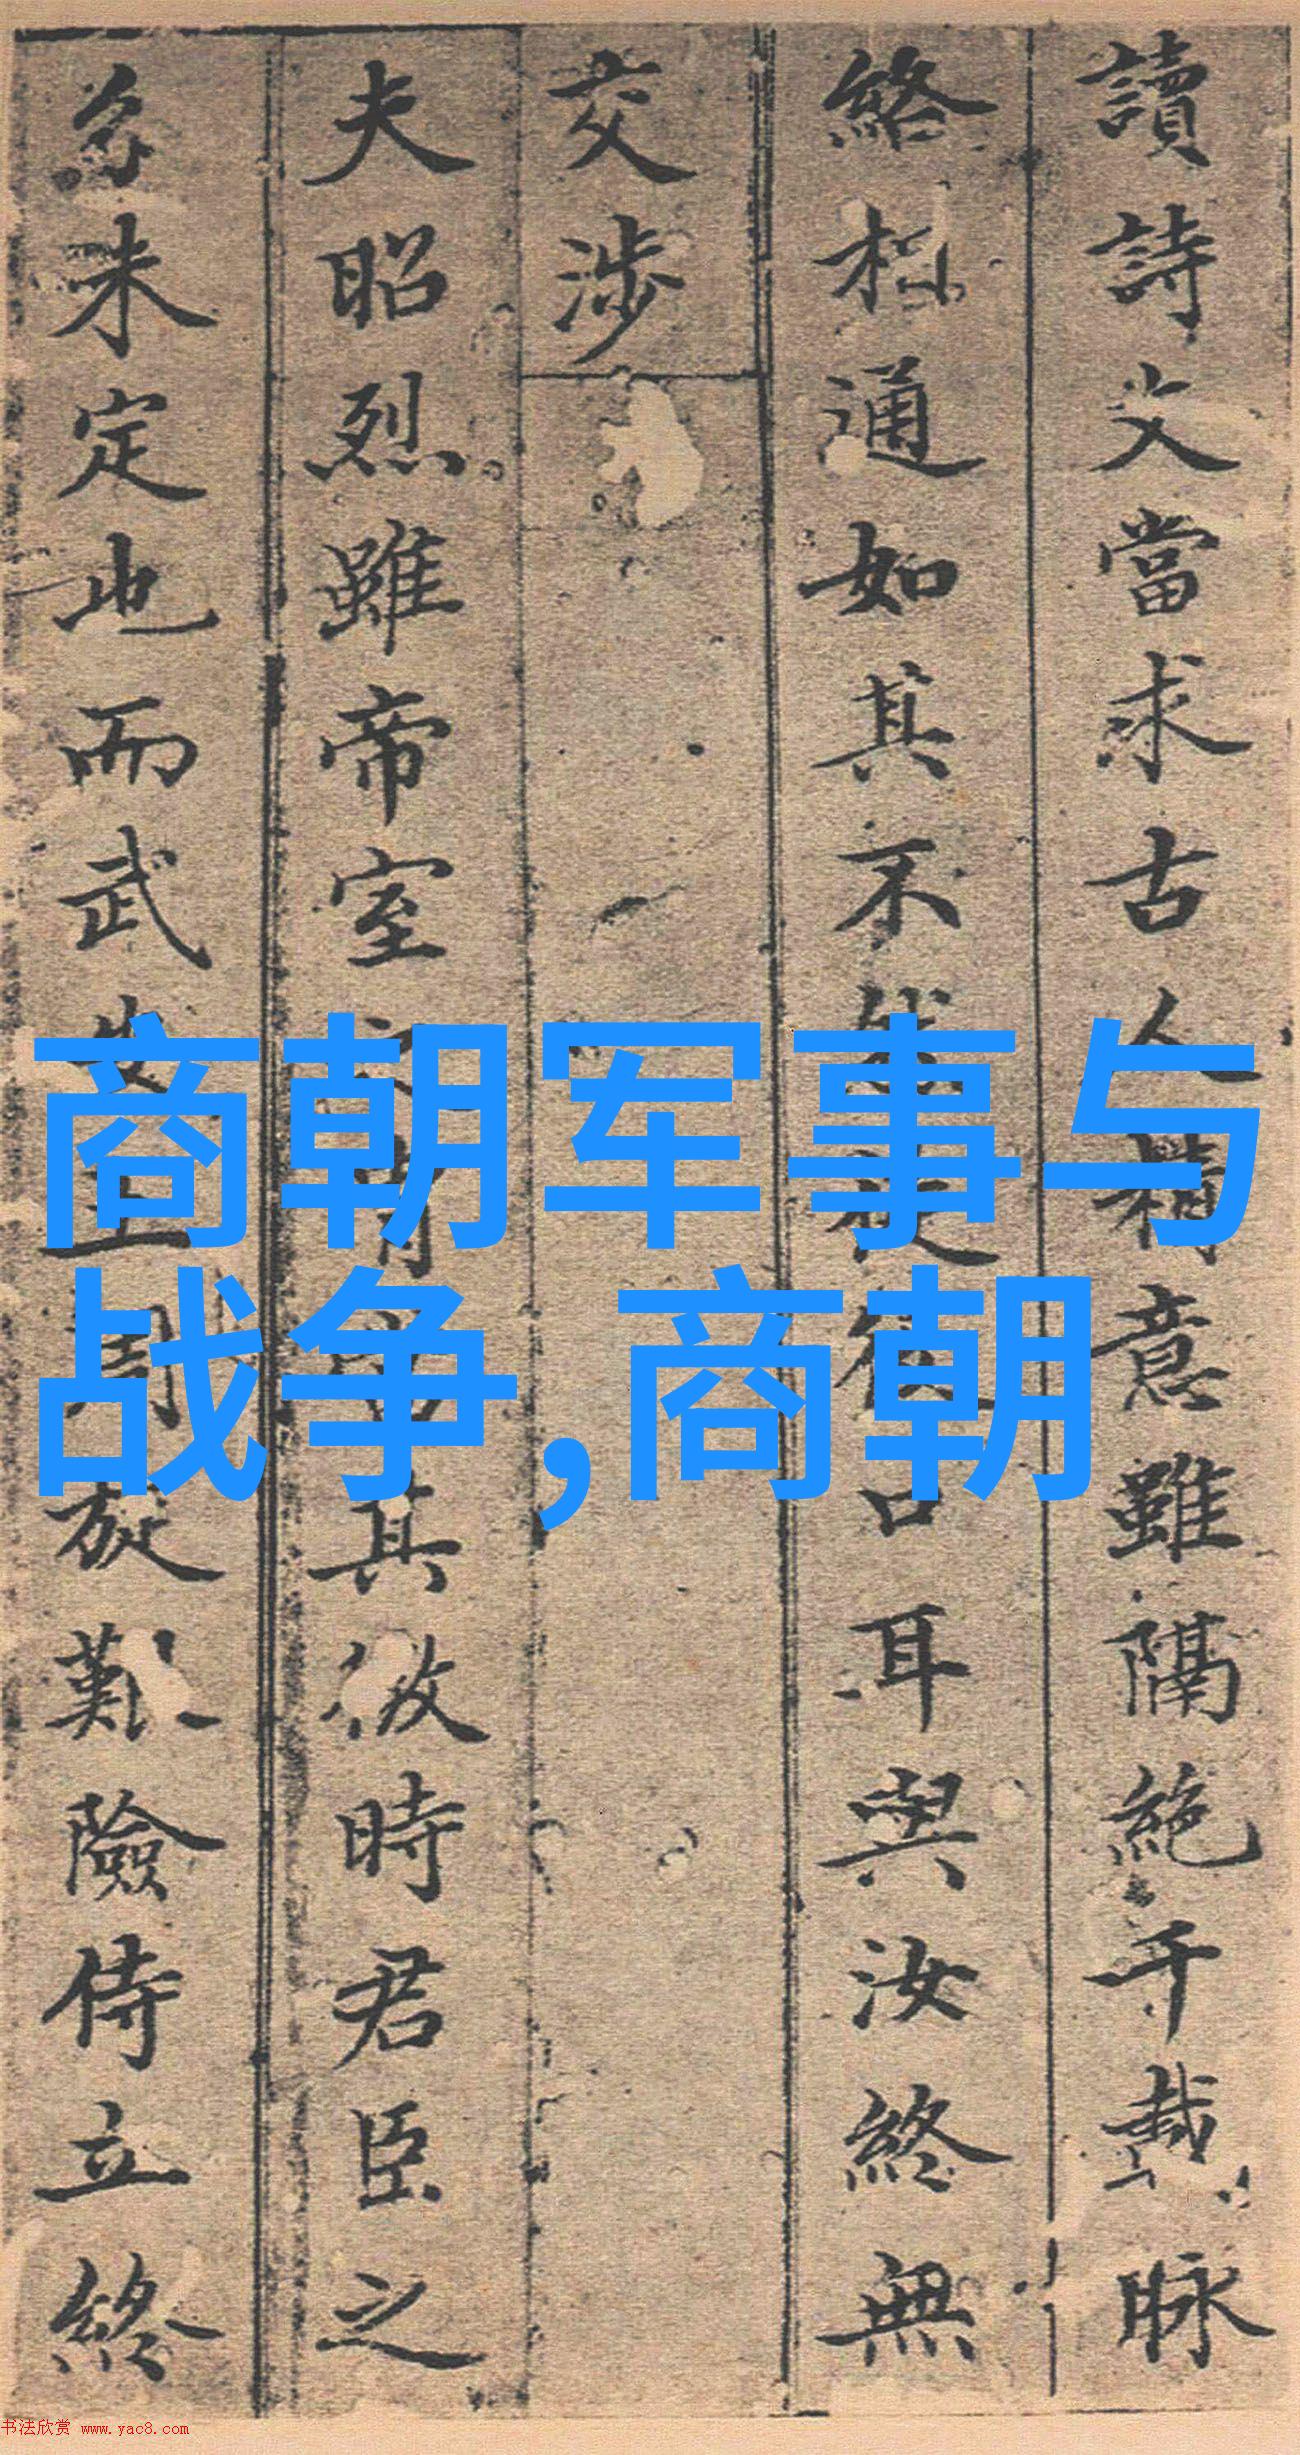 讀詩文當求古人精意雖隔絶千載脉
絡相通如其不然徒役口耳與汝終無
交涉
夫昭烈雖帝室之
其微時君臣之
分未定也而武安王周旋艱險侍立終
商朝军事与
战争,商朝
书法欣赏 www.yac8.com